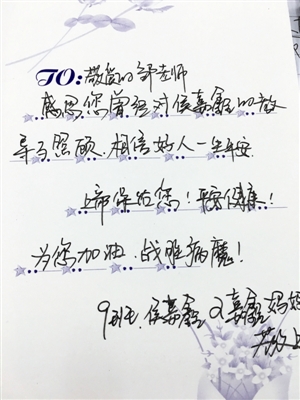 TO:敬爱的邹老师
感恩您曾经对侯嘉鑫的教
导与照顾,相信好人一生平安
上帝保佑您!平安健康!
为您加油,战胜病魔!
9班 侯嘉鑫 及嘉鑫妈妈
敬上